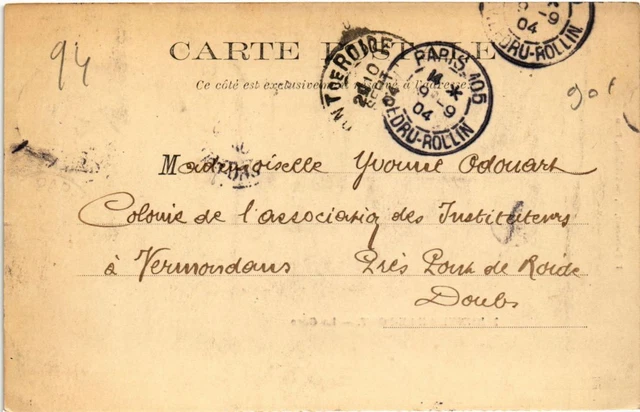 94
CARTE POSTALE
Ce côté est exclusivement réservé à l'adresse
PONT DE ROIDE
20
10
SEPT
04
PARIS 105
14
9 - 9
04
LEDRU-ROLLIN
9 - 9
04
LEDRU-ROLLIN
90f
Mademoiselle Yvonne Odouart
Colonie de l'association des Instituteurs
à Vermondans Près Pont de Roide
Doubs